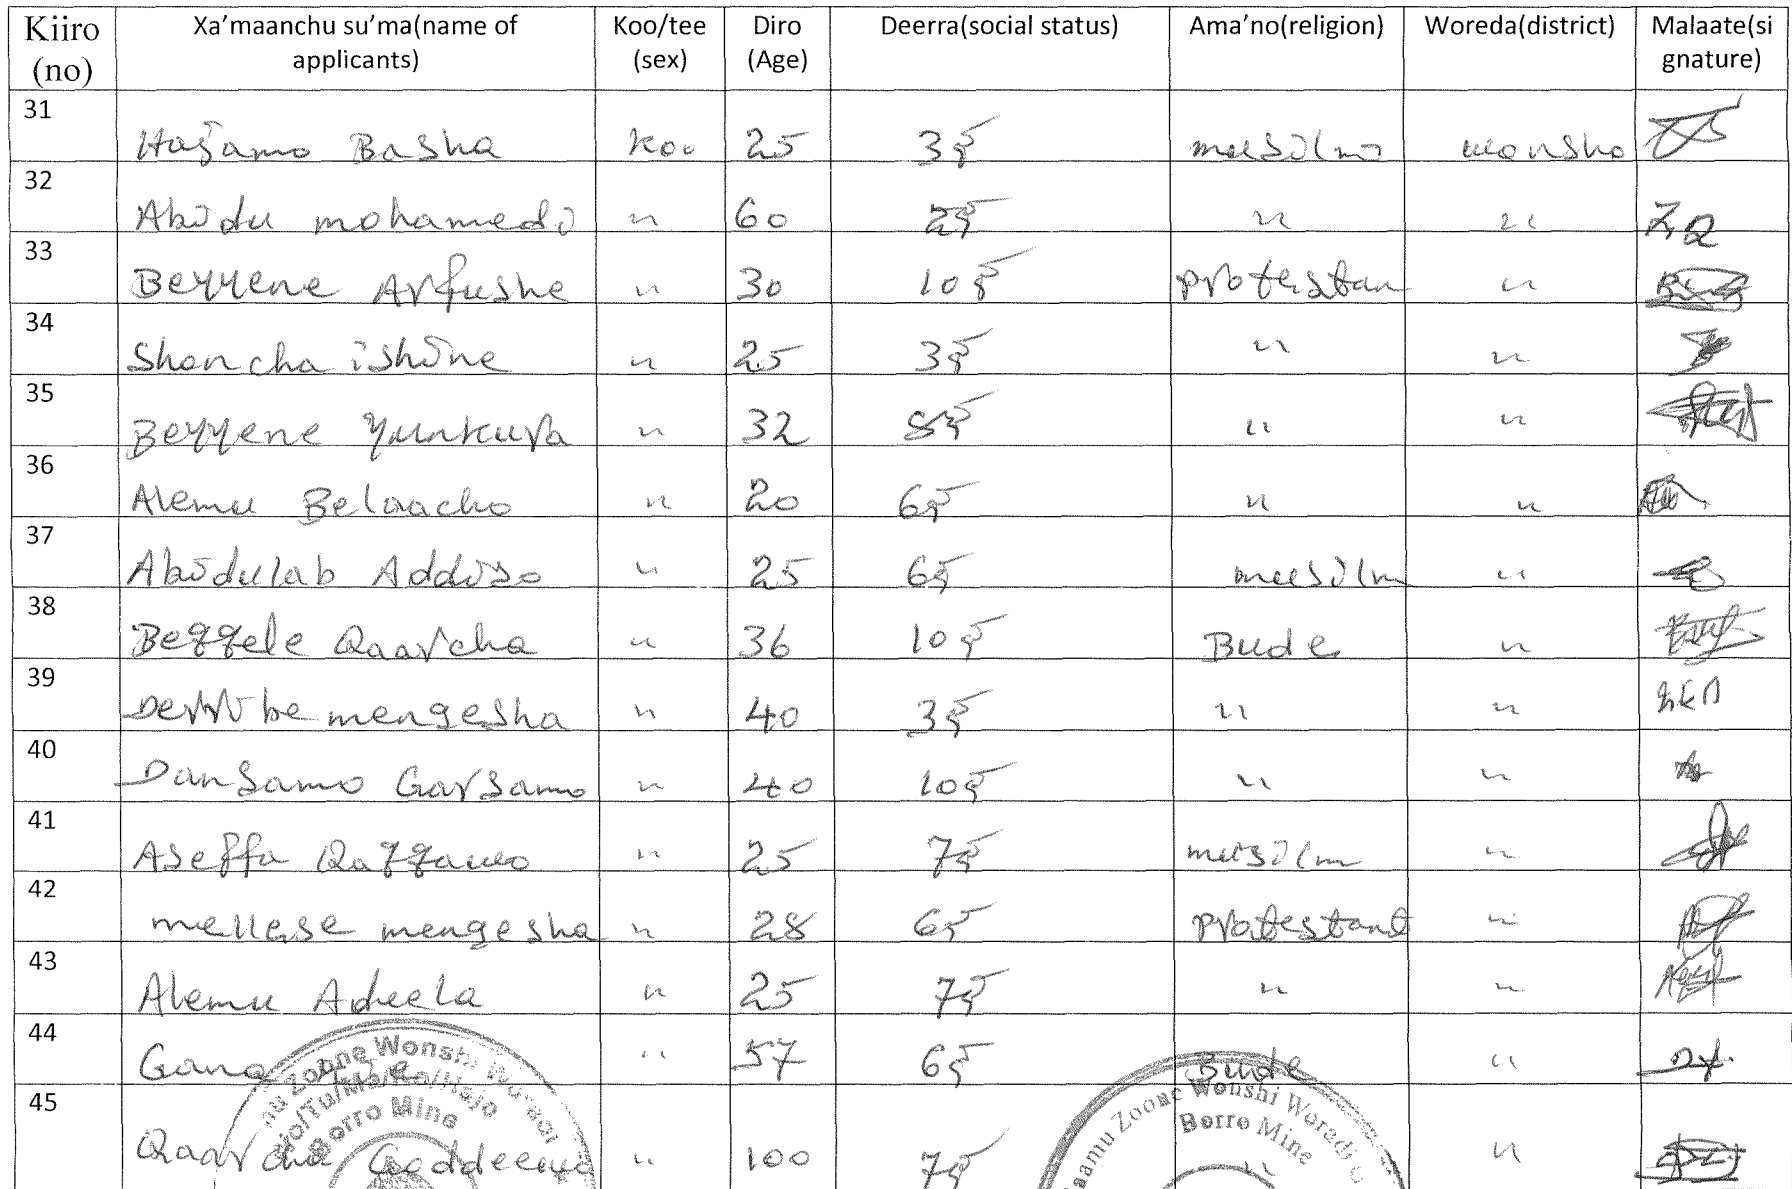 Kiiro (no) Xa'maanchu su'ma(name of applicants) Koo/tee (sex) Diro (Age) Deerra(social status) Ama'no(religion) Woreda(district) Malaate(signature)
31 Basha Koo 25 3ኛ musilm wonsho
32 Abidu mohamedi " 60 2ኛ " "
33 Beyyene Arfushe " 30 10ኛ protestan "
34 Shancha ishine " 25 3ኛ " "
35 Beyyene Yunkura " 32 8ኛ " "
36 Alemu Belaacho " 20 6ኛ " "
37 Abidulab Addiso " 25 6ኛ musilm "
38 Beqqele Qaarcha " 36 10ኛ Bude "
39 Derribe mengesha " 40 3ኛ " "
40 Dansamo Garsamo " 40 10ኛ " "
41 Aseffa Qaqqawo " 25 7ኛ musilm "
42 mellese mengesha " 28 6ኛ protestant "
43 Alemu Adeela " 25 7ኛ " "
44 Gana " 57 6ኛ Bude "
45 Qaarcha " 100 7ኛ " "
Zoone Wonshi
Borro Mine
Zoone Wonshi Woradi
Borro Mine